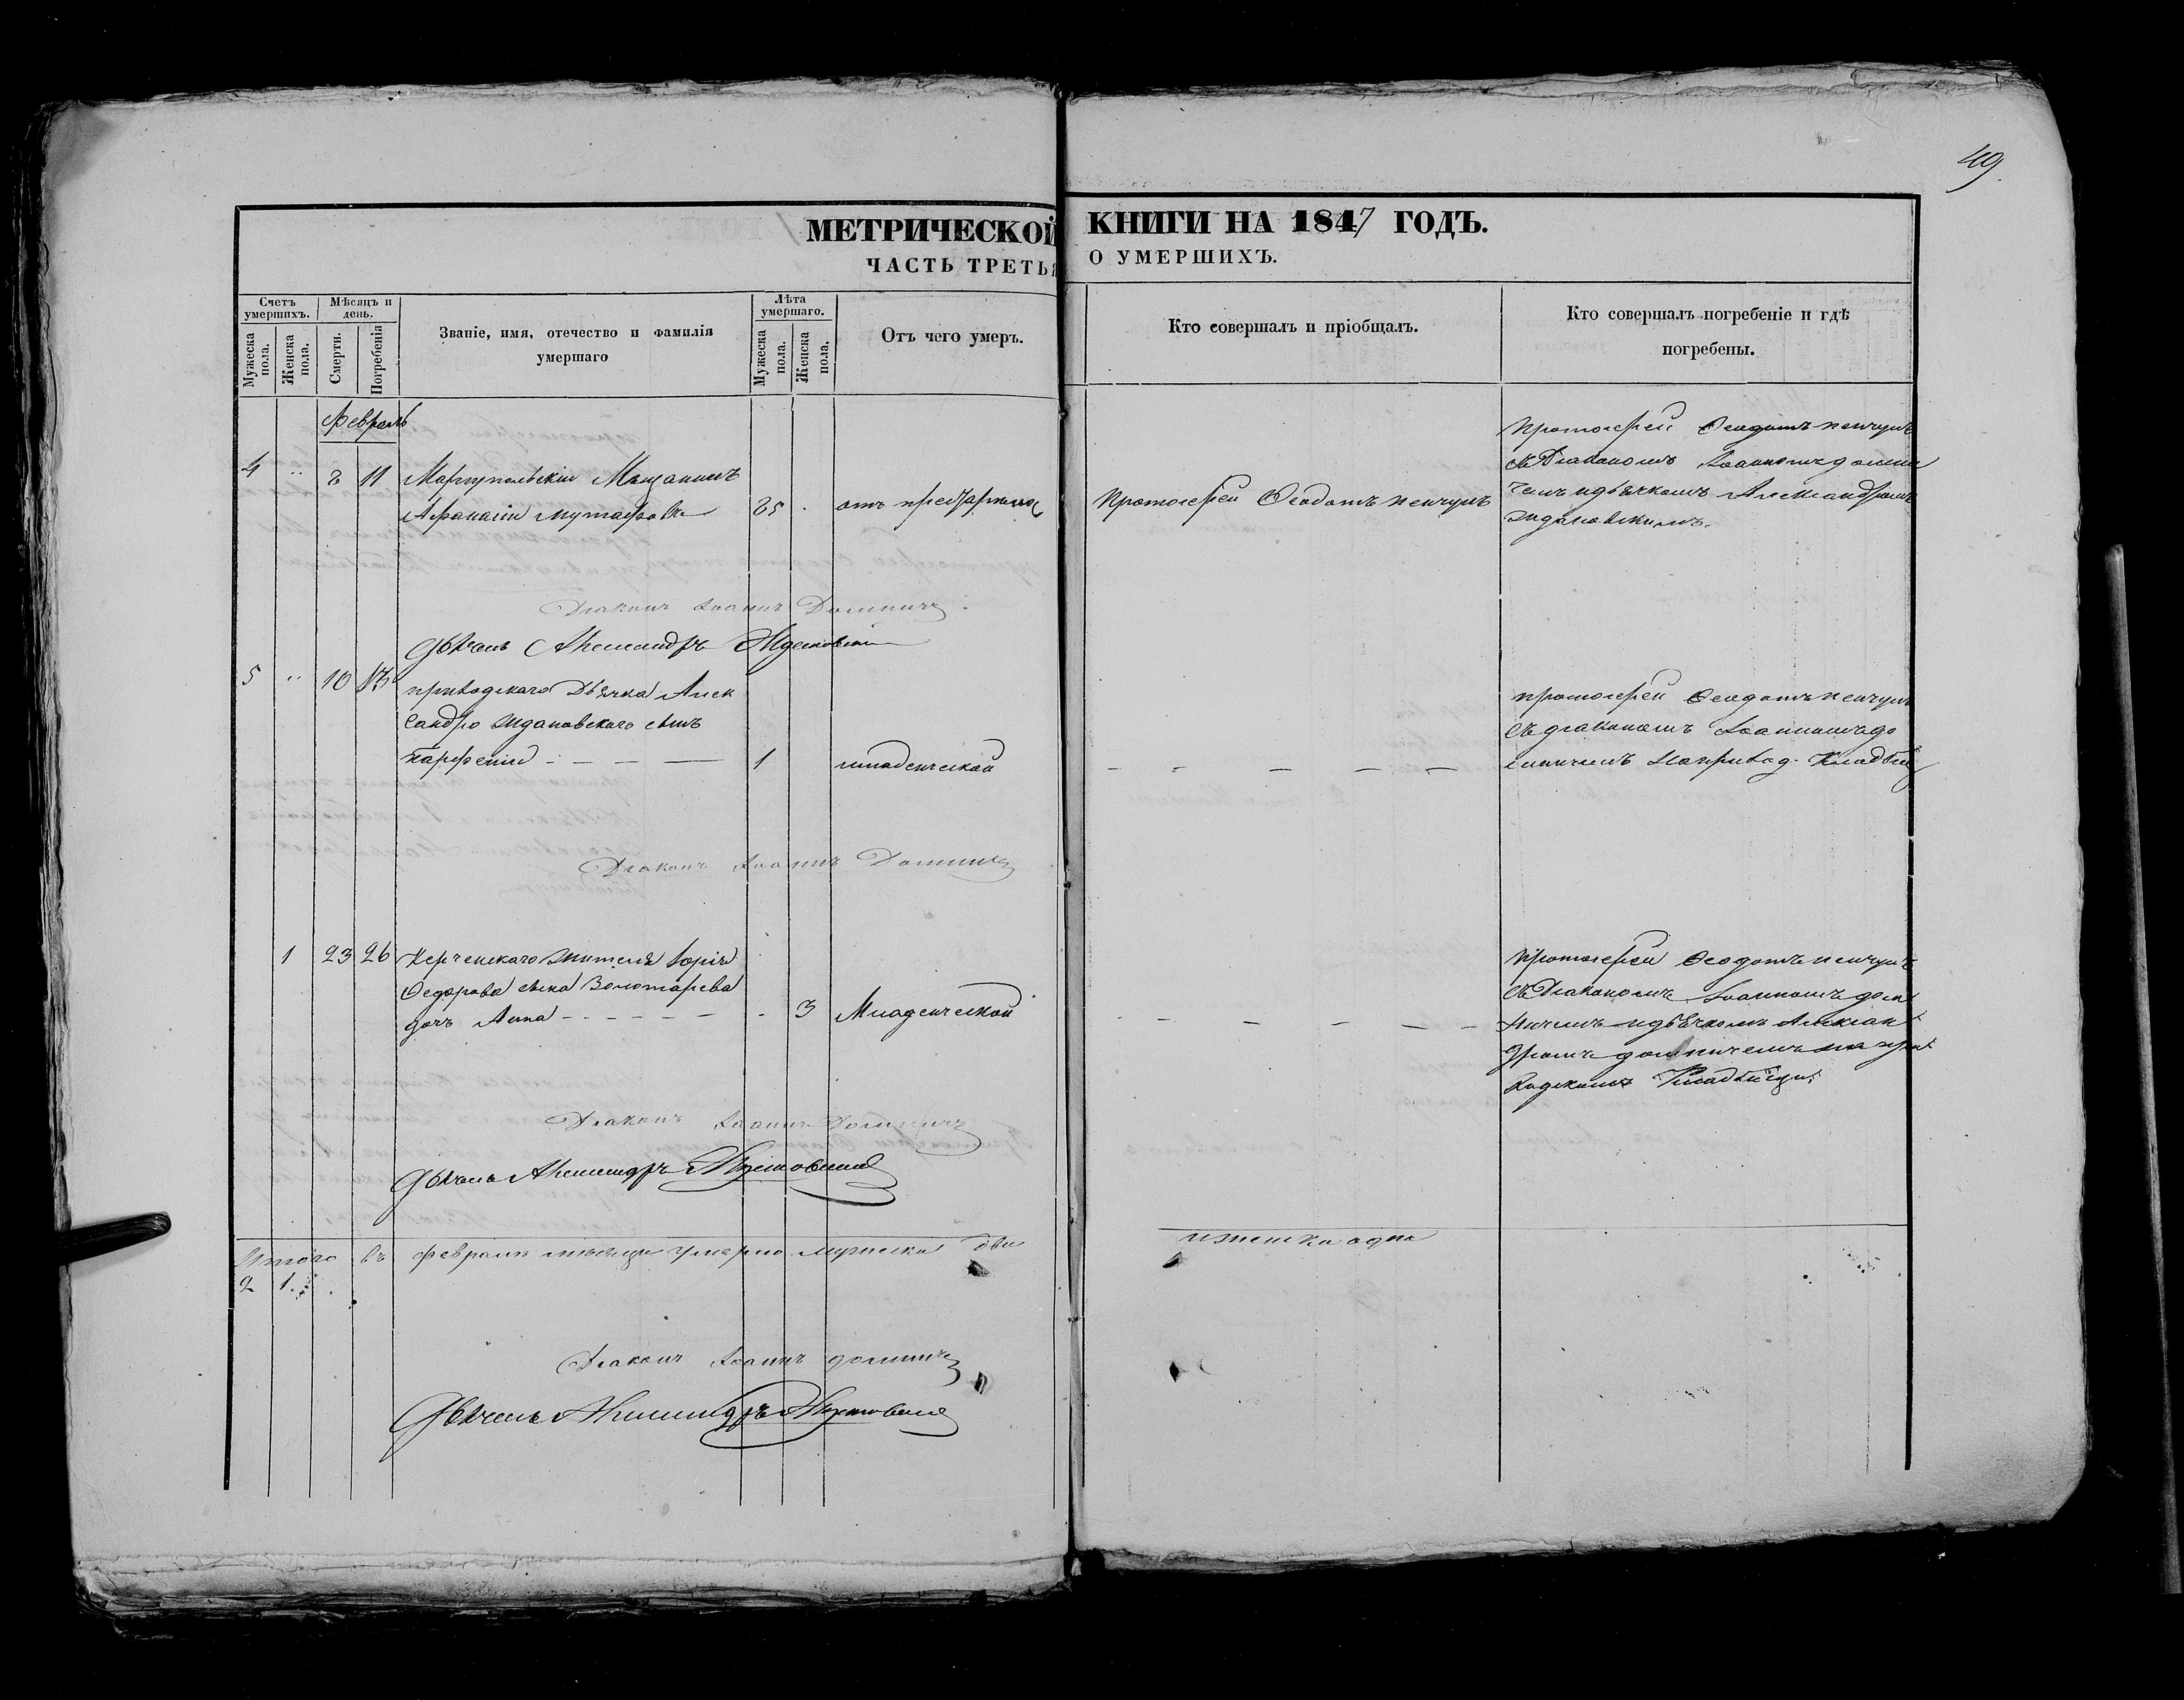 49.
МЕТРИЧЕСКОЙ КНИГИ НА 1847 ГОДЪ.
ЧАСТЬ ТРЕТЬЯ О УМЕРШИХЪ.
Счетъ умершихъ.
Мужеска пола.
Женска пола.
Мѣсяцъ и день.
Смерти.
Погребенія
Званіе, имя, отечество и фамилія
умершаго
Лѣта умершаго.
Мужеска пола.
Женска пола.
Отъ чего умеръ.
Кто совершалъ и пріобщалъ.
Кто совершалъ погребеніе и гдѣ
погребены.
Февраль
4 .. 8 11 Маріупольскій Мещанинъ
Афанасій 85 . отъ
Протоіерей Ѳеодотъ
Протоіерей Ѳеодотъ
съ Діакономъ Іоанномъ доли
чемъ и дьячкомъ Александромъ
Ждановскимъ.
Діаконъ Іоаннъ
Дьячокъ Александръ Ждановскій
5 .. 10 приходскаго Дьячка Алек
сандра Ждановскаго сынъ
Парфеній 1 младенческой
протоіерей Ѳеодотъ
съ діакономъ Іоанномъ до
на приход. Кладби
Діаконъ Іоаннъ
1 23 26 Керченскаго жителя
Ѳедорова сына Золотарева
дочь Анна - 3 Младенческой
Протоіерей Ѳеодотъ
съ Діакономъ Іоанномъ
и дьячкомъ Алексан
дромъ на при
ходскомъ Кладбищѣ
Діаконъ Іоаннъ
Дьячокъ Александръ Ждановскій
Итого въ февралѣ месяцѣ умерло мужеска два
и женска одна
2 1.
Діаконъ Іоаннъ
Дьячокъ Александръ Ждановскій